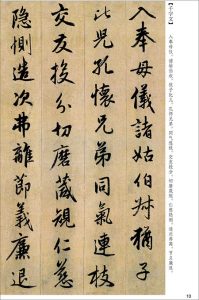 【千字文】
入奉母儀，諸姑伯叔，猶子比兒，孔懷兄弟，同氣連枝，交友投分，切磨箴規，仁慈隱惻，造次弗離，節義廉退。
入奉母儀諸姑伯叔猶子
比兒孔懷兄弟同氣連枝
交友投分切磨箴規仁慈
隱惻造次弗離節義廉退
13